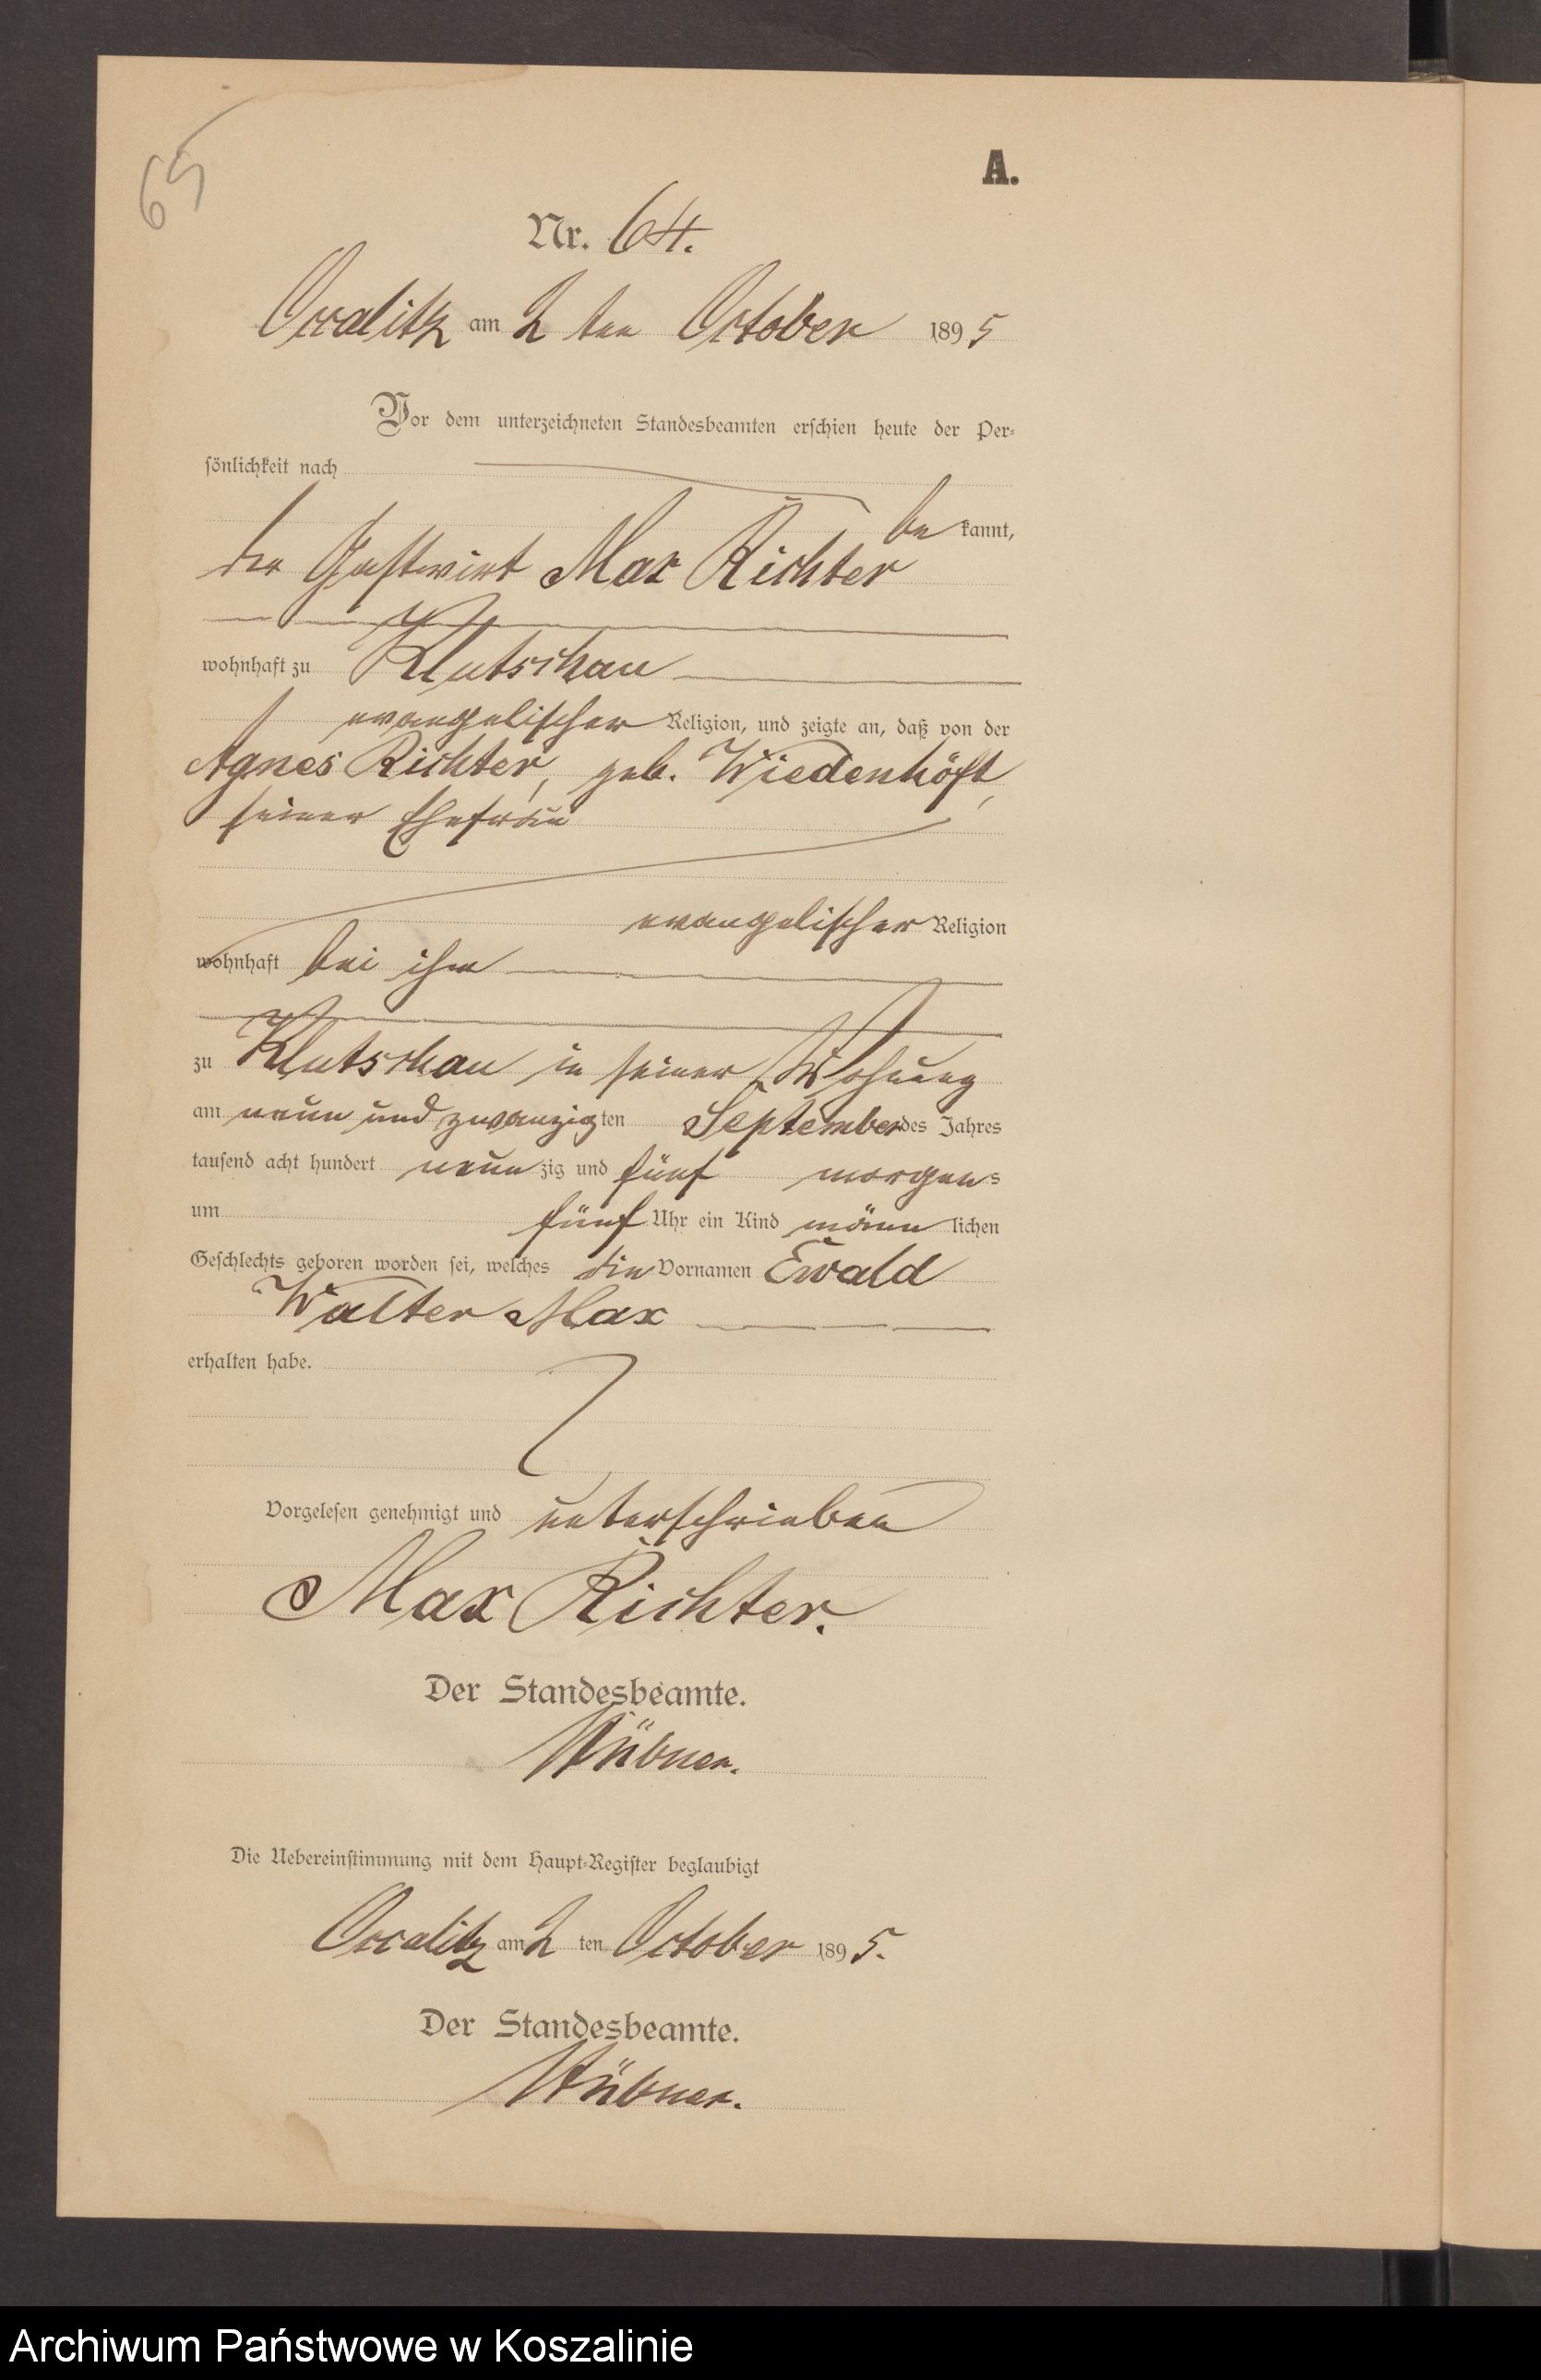 65
A.
Nr. 64.
Occalitz am 2 ten October 1895
Vor dem unterzeichneten Standesbeamten erschien heute der Per-
sönlichkeit nach
be kannt,
der Gastwirt Max Richter
wohnhaft zu Klutschau
evangelischer Religion, und zeigte an, daß von der
Agnes Richter, geb. Wiedenhöft,
seiner Ehefrau
evangelischer Religion
wohnhaft bei ihm
zu Klutschau in seiner Wohnung
am neun und zwanzigten September des Jahres
tausend acht hundert neunzig und fünf morgens
um fünf Uhr ein Kind männlichen
Geschlechts geboren worden sei, welches die Vornamen Ewald
Walter Max
erhalten habe.
Vorgelesen genehmigt und unterschrieben
Max Richter.
Der Standesbeamte.
Die Uebereinstimmung mit dem Haupt-Register beglaubigt
Occalitz am 2 ten October 1895.
Der Standesbeamte.
Archiwum Państwowe w Koszalinie